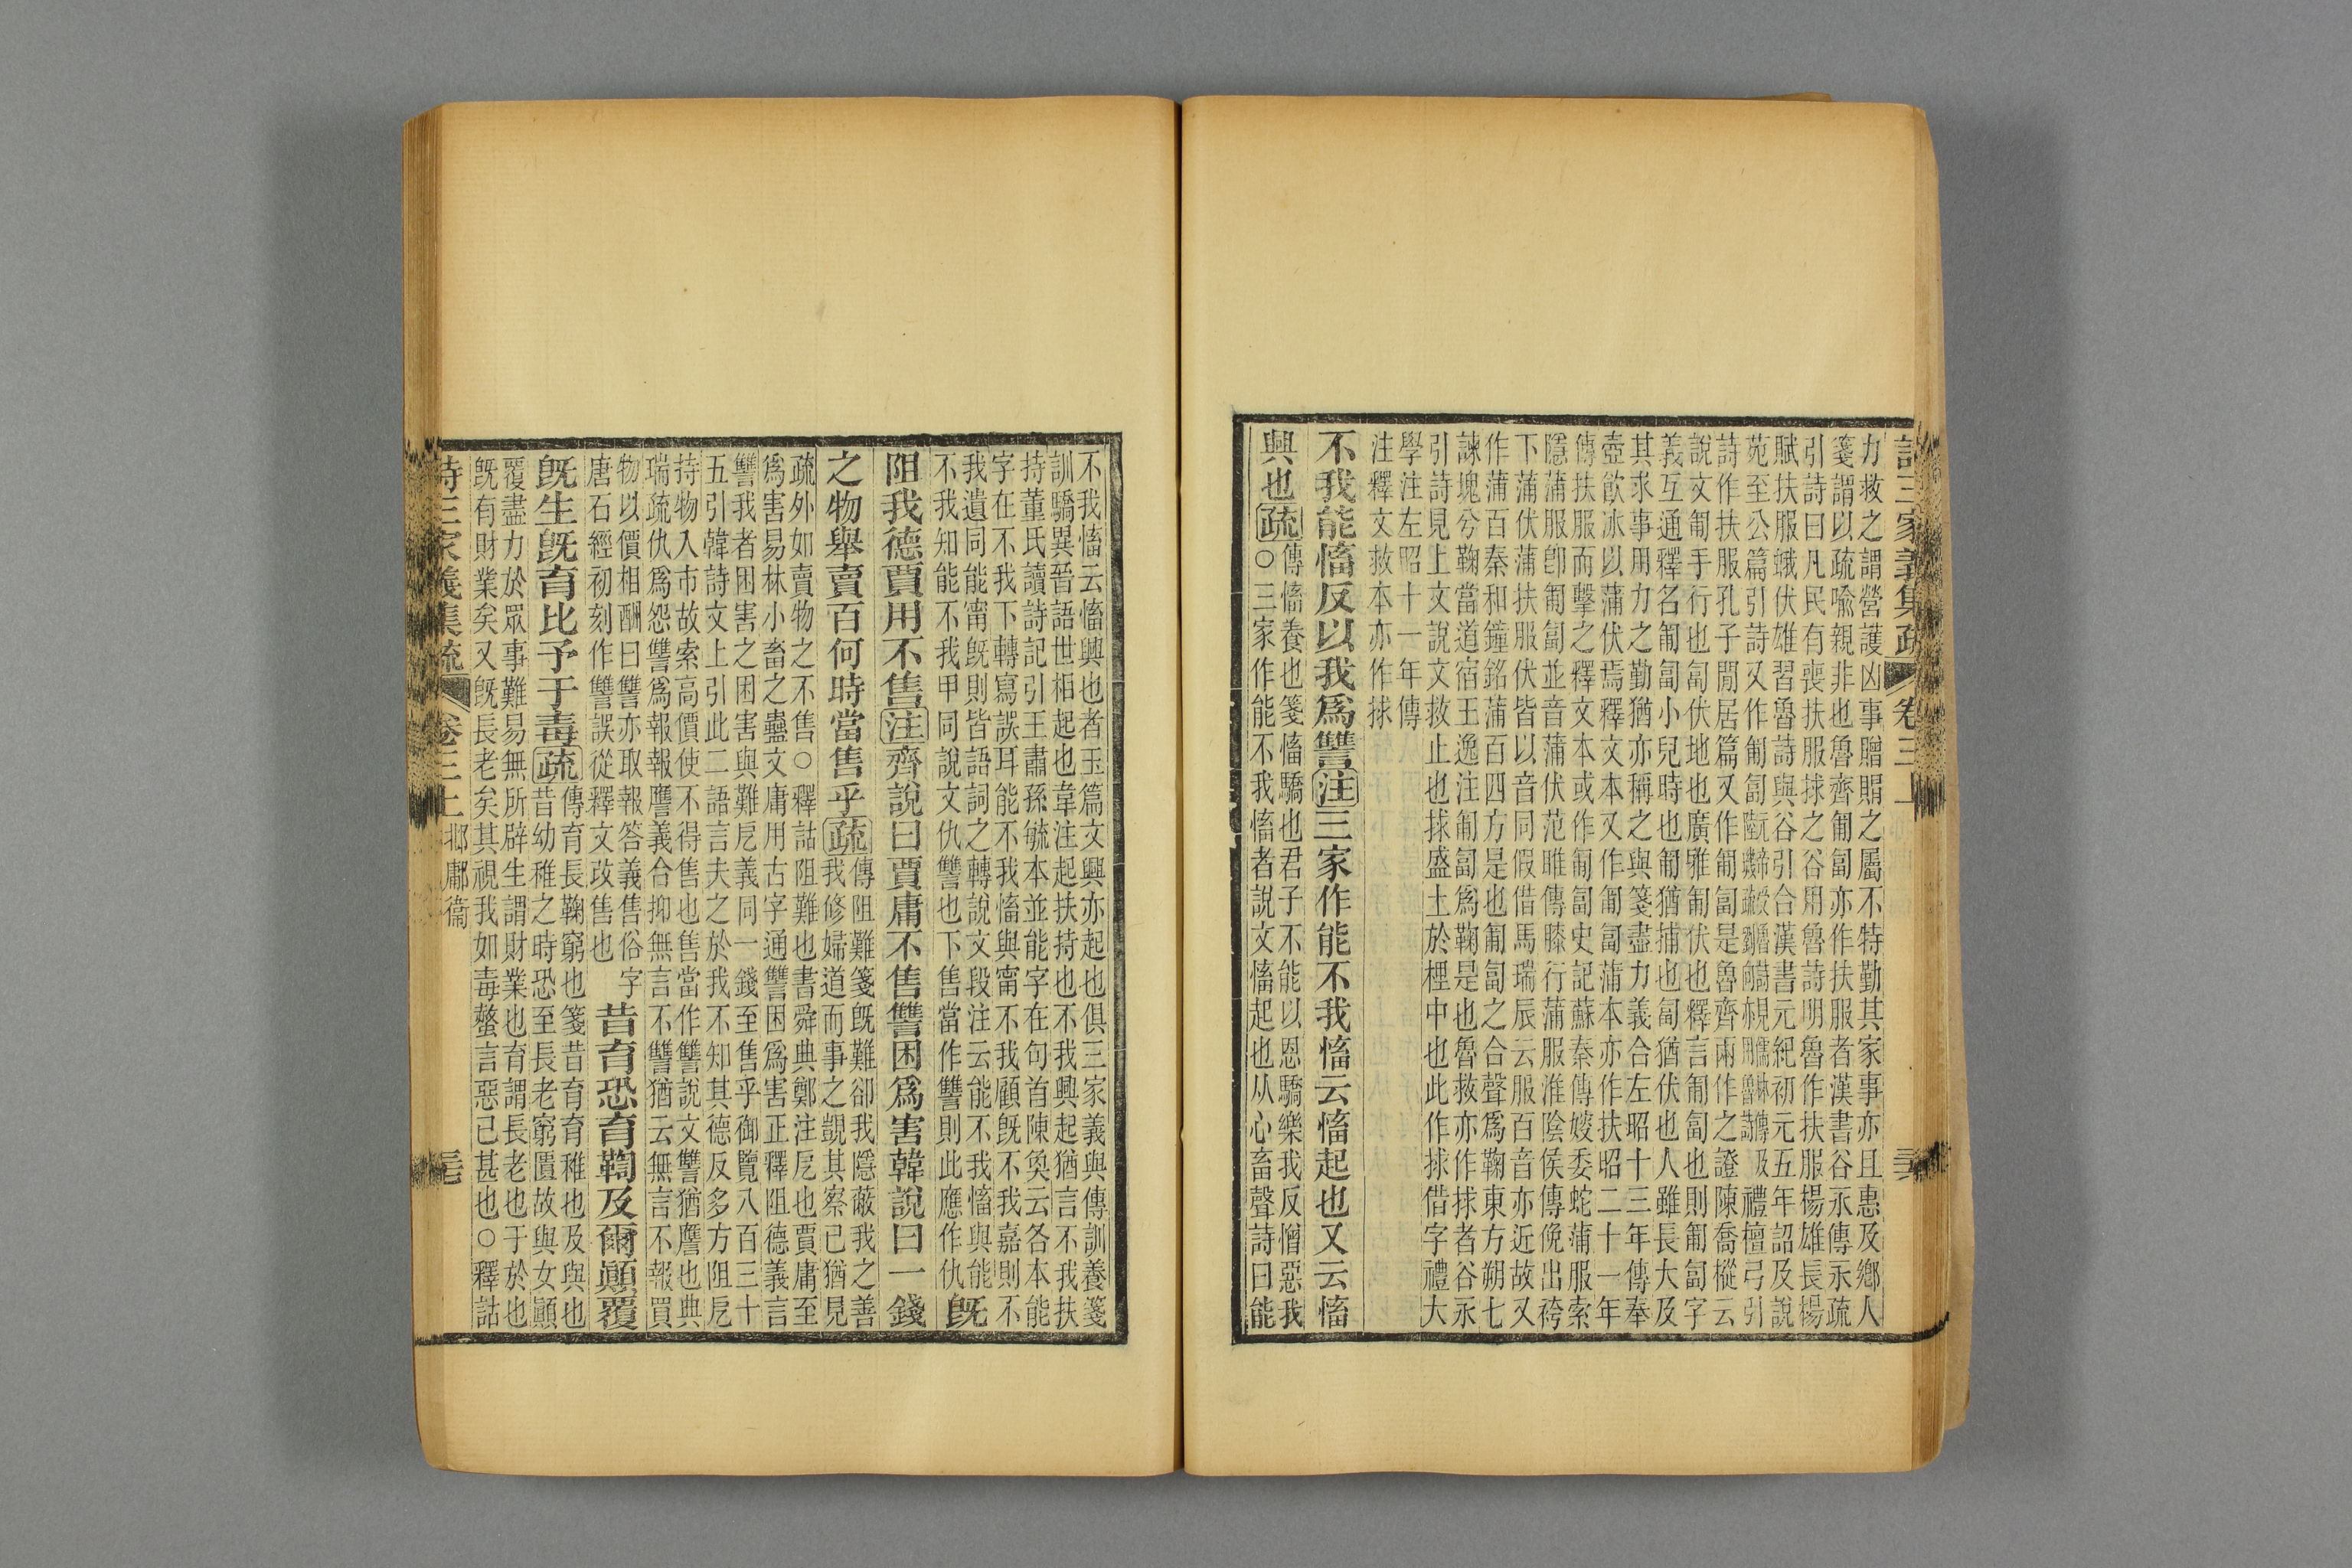 詩三家義集疏 卷三上
力救之謂營護凶事贈賵之屬不特勤其家事亦且惠及鄉人
箋謂以疏喻親非也魯齊匍匐亦作扶服者漢書谷永傳永疏
引詩曰凡民有喪扶服捄之谷用魯詩明魯作扶服楊雄長楊
賦扶服蛾伏雄習魯詩與谷引合漢書元紀初元五年詔及說
苑至公篇引詩又作匍匐 禮檀弓引
詩作扶服孔子閒居篇又作匍匐是魯齊兩作之證陳喬樅云
說文匍手行也匐伏地也廣雅匍伏也釋言匍匐也則匍匐字
義互通釋名匍匐小兒時也匍猶捕也匐猶伏也人雖長大及
其求事用力之勤猶亦稱之與箋盡力義合左昭十三年傳奉
壺飲冰以蒲伏焉釋文本又作匍匐蒲本亦作扶昭二十一年
傳扶服而擊之釋文本或作匍匐史記蘇秦傳嫂委蛇蒲服索
隱蒲服卽匍匐並音蒲伏范雎傳膝行蒲服淮陰侯傳俛出袴
下蒲伏蒲扶服伏皆以音同假借馬瑞辰云服百音亦近故又
作蒲百秦和鐘銘蒲百四方是也匍匐之合聲爲鞠東方朔七
諫塊兮鞠當道宿王逸注匍匐爲鞠是也魯救亦作捄者谷永
引詩見上文說文救止也捄盛土於梩中也此作捄借字禮大
學注左昭十一年傳
注釋文救本亦作捄
不我能慉反以我爲讐注三家作能不我慉云慉起也又云慉
興也疏傳慉養也箋慉驕也君子不能以恩驕樂我反憎惡我
○三家作能不我慉者說文慉起也从心畜聲詩曰能
不我慉云慉興也者玉篇文興亦起也俱三家義與傳訓養箋
訓驕異晉語世相起也韋注起扶持也不我興起猶言不我扶
持董氏讀詩記引王肅孫毓本並能字在句首陳奐云各本能
字在不我下轉寫誤耳能不我慉與甯不我顧旣不我嘉則不
我遺同能甯旣則皆語詞之轉說文段注云能不我慉與能
不我知能不我甲同說文仇讐也下售當作讐則此應作仇旣
阻我德賈用不售注齊說曰賈庸不售讐困爲害韓說曰一錢
之物舉賣百何時當售乎疏傳阻難箋旣難卻我隱蔽我之善
我修婦道而事之覬其察己猶見
疏外如賣物之不售○釋詁阻難也書舜典鄭注戹也賈庸至
爲害易林小畜之蠱文庸用古字通讐困爲害正釋阻德義言
讐我者困害之困害與難戹義同一錢至售乎御覽八百三十
五引韓詩文上引此二語言夫之於我不知其德反多方阻戹
持物入市故索高價使不得售也售當作讐說文讐猶譍也典
瑞疏仇爲怨讐爲報報譍義合抑無言不讐猶云無言不報買
物以價相酬曰讐亦取報答義售俗字
唐石經初刻作讐誤從釋文改售也
昔育恐育鞫及爾顛覆
旣生旣育比予于毒疏傳育長鞠窮也箋昔育育稚也及與也
昔幼稚之時恐至長老窮匱故與女顚
覆盡力於眾事難易無所辟生謂財業也育謂長老也于於也
旣有財業矣又旣長老矣其視我如毒螫言惡己甚也○釋詁
詩三家義集疏 卷三上 邶鄘衞